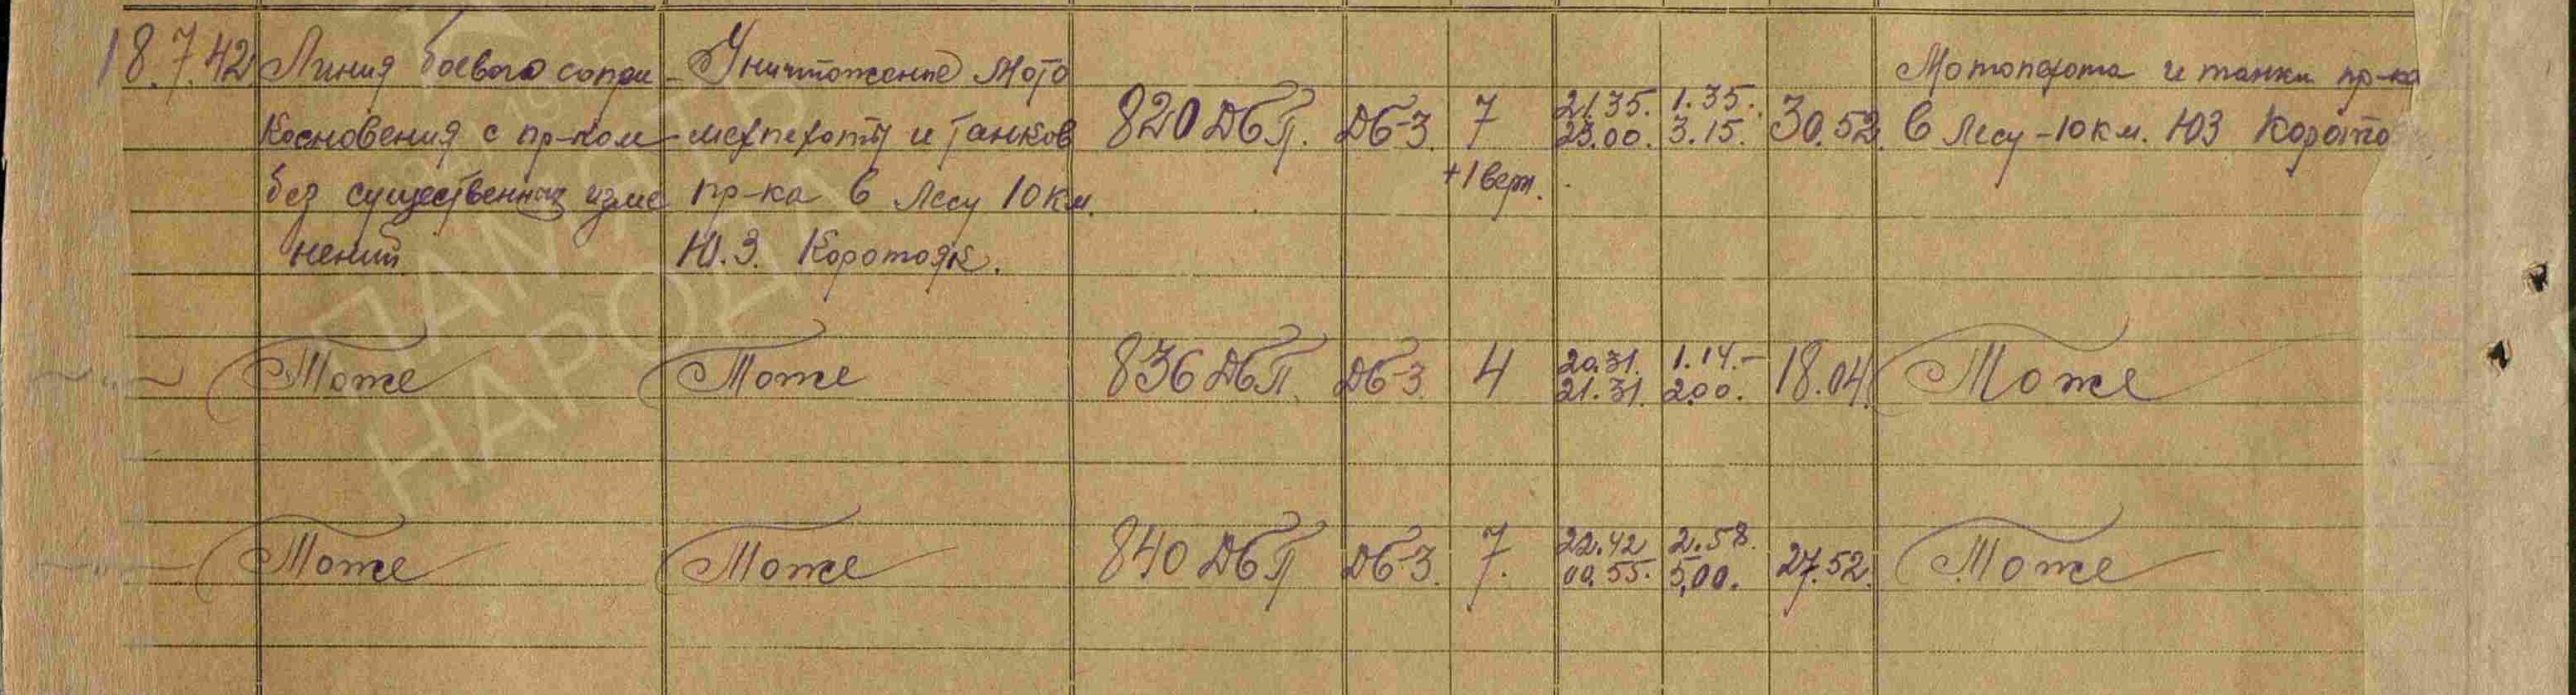 18.7.42 Линия боевого сопри- Уничтожение мото Мотопехота и танки пр-ка
косновения с пр-ком мехпехоты и танков 820 ДБП. ДБ-3. 7 21.35. 1.35. 30.52. в лесу -10 км. ЮЗ Корото
23.00. 3.15.
без существенных изме пр-ка в лесу 10 км. +1 верн.
нений Ю.З. Коротояк.
-"- Тоже Тоже 836 ДБП. ДБ-3. 4 20.31. 1.14.- 18.04. Тоже
21.31. 2.00.
-"- Тоже Тоже 840 ДБП ДБ-3. 7. 22.42 2.58. 27.52. Тоже
00.55. 5.00.
ПАМЯТЬ
НАРОДА